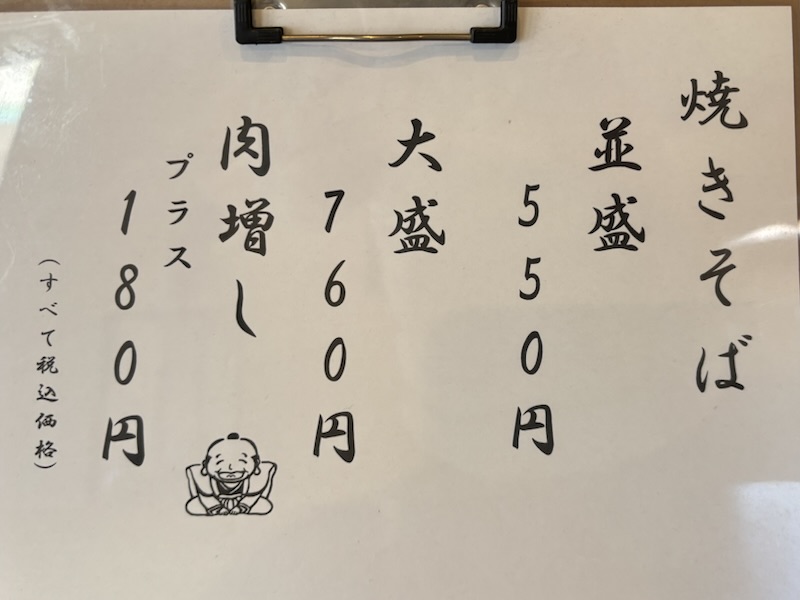 焼きそば
並盛
550円
大盛
760円
肉増し
プラス
180円
(すべて税込価格)